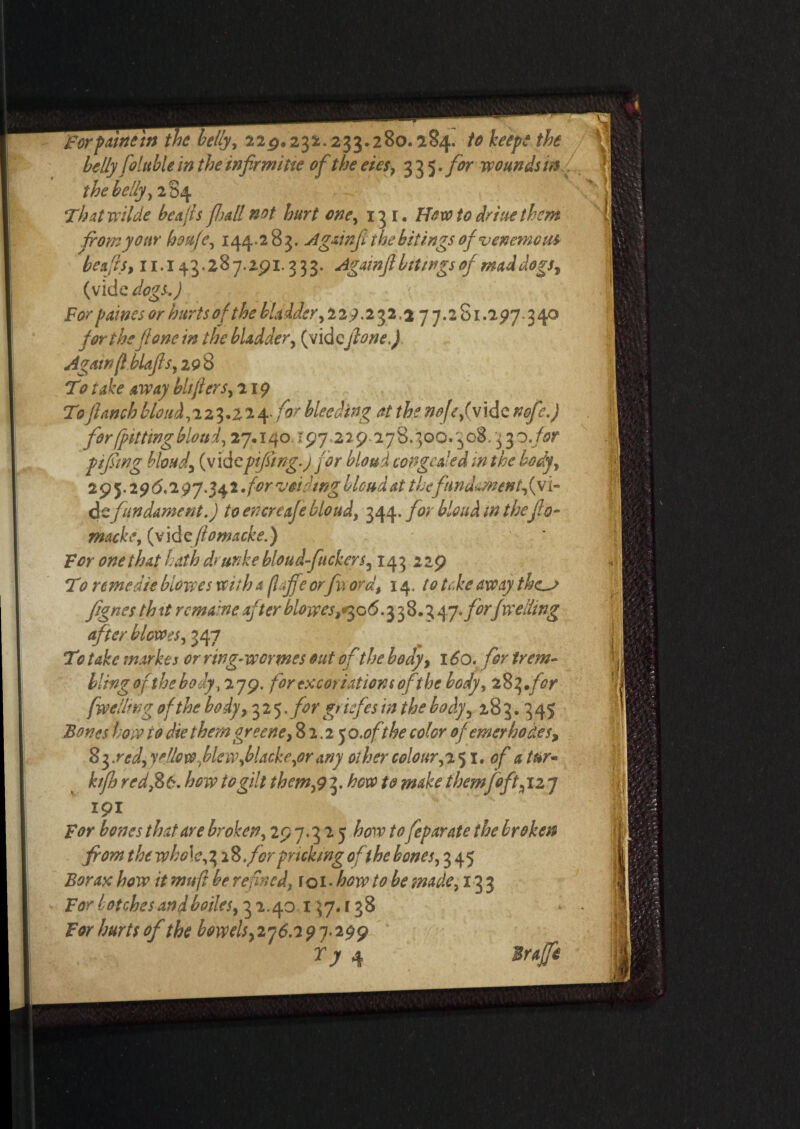 For paine in the belly, 229.232.233.280.284. to keepe the
belly soluble in the infirmitie of the eies, 335. for wounds in
the belly, 284
That wilde beasts shall not hurt one, 131. How to driue them
from your house, 144.283. Against the bitings of venemous
beasts, 11.143.287.291.333. Against bitings of mad dogs,
(vide dogs.)
For paines or hurts of the bladder, 229.232.277.281.297.340
for the stone in the bladder, (vide stone.)
Against blasts, 298
To take away blisters, 219
To stanch bloud, 223.224. for bleeding at the nose, (vide nose.)
for spitting bloud, 27.140.197.229.278.300.308.330. for
pissing bloud, (vide pissing.) for bloud congealed in the body,
295.296.297.342. for voiding bloud at the fundament, (vi-
de fundament.) to encrease bloud, 344. for bloud in the sto-
macke, (vide stomacke.)
For one that hath drunke bloud-suckers, 143 229
To remedie blowes with a staffe or sword, 14. to take away the
signes that remaine after blowes, 306.338.347. for swelling
after blowes, 347
To take markes or ring-wormes out of the body, 160. for trem-
bling of the body, 279. for excoriations of the body, 283. for
swelling of the body, 325. for griefes in the body, 283. 345
Bones how to die them greene, 82.250. of the color of emerhodes,
83. red, yellow, blew, blacke, or any other colour, 251. of a tur-
kish red, 86. how to gilt them, 93. how to make them soft, 127
191
For bones that are broken, 297.325 how to separate the broken
from the whole, 328. for pricking of the bones, 345
Borax how it must be refined, 101. how to be made, 133
For botches and boiles, 32.40.137.138
For hurts of the bowels, 276.297.299
Yy 4 Brasse